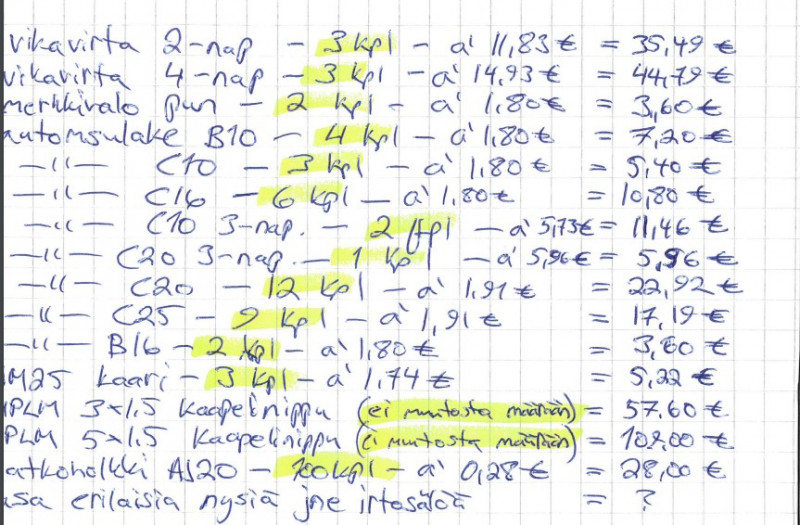 vikavirta 2-nap - 3 kpl - a' 11,83 € = 35,49 €
vikavirta 4-nap - 3 kpl - a' 14,93 € = 44,79 €
merkkivalo pun - 2 kpl - a' 1,80 € = 3,60 €
automsulake B10 - 4 kpl - a' 1,80 € = 7,20 €
-"- C10 - 3 kpl - a' 1,80 € = 5,40 €
-"- C16 - 6 kpl - a' 1,80 € = 10,80 €
-"- C10 3-nap. - 2 kpl - a' 5,73 € = 11,46 €
-"- C20 3-nap. - 1 kpl - a' 5,96 € = 5,96 €
-"- C20 - 12 kpl - a' 1,91 € = 22,92 €
-"- C25 - 9 kpl - a' 1,91 € = 17,19 €
-"- B16 - 2 kpl - a' 1,80 € = 3,60 €
M25 kaari - 3 kpl - a' 1,74 € = 5,22 €
PLM 3x1,5 kaapelinippu (ei muutosta määrään) = 57,60 €
PLM 5x1,5 kaapelinippu (ei muutosta määrään) = €
jatkoholkki AJ20 - 100 kpl - a' 0,28 € = 28,00 €
asa erilaisia nysiä jne irtosälää = ?